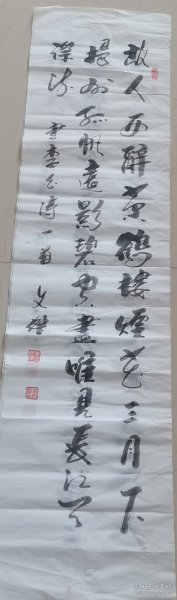 故人西辞黄鶴楼煙花三月下
揚州孤帆遠影碧空盡唯見長江天
際流 書李白詩一首